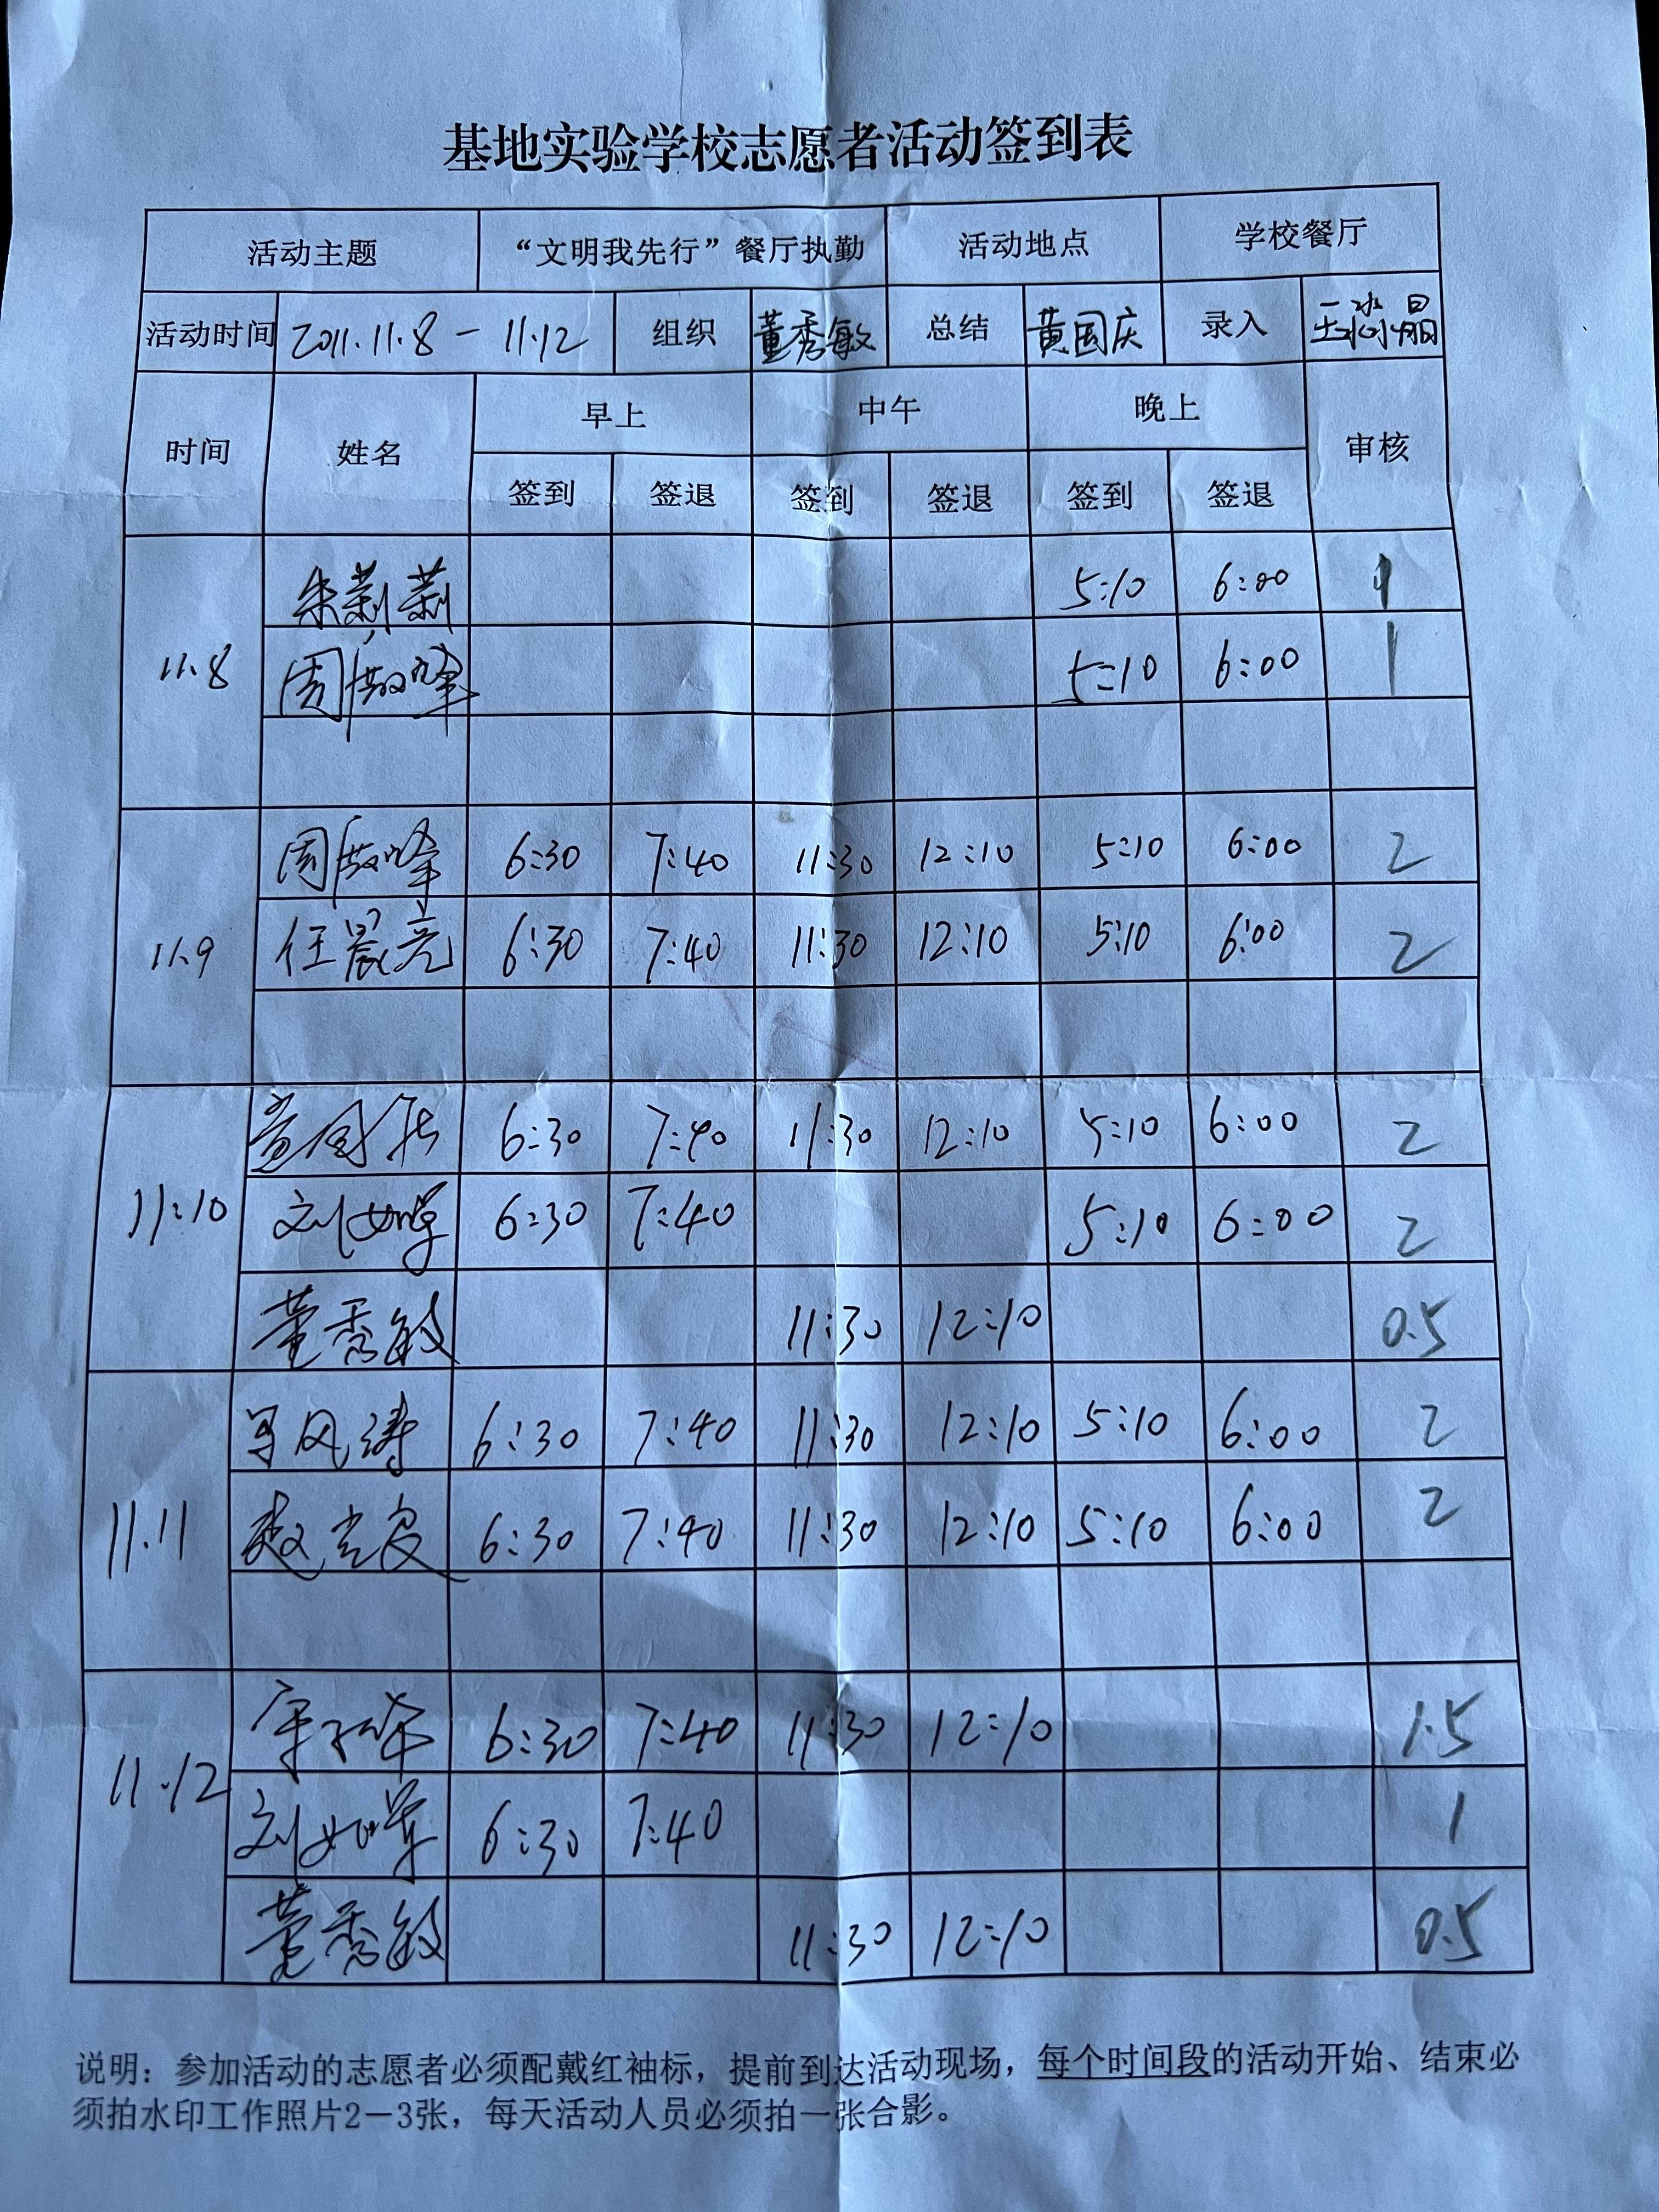 基地实验学校志愿者活动签到表
活动主题 “文明我先行”餐厅执勤 活动地点 学校餐厅
活动时间 2011.11.8 - 11.12 组织 董秀敏 总结 黄国庆 录入 王冰晶
时间 姓名 早上 中午 晚上 审核
签到 签退 签到 签退 签到 签退
11.8 朱莉莉 5:10 6:00 1
周峰 5:10 6:00 1
11.9 周峰 6:30 7:40 11:30 12:10 5:10 6:00 2
任晨亮 6:30 7:40 11:30 12:10 5:10 6:00 2
6:30 7:40 11:30 12:10 5:10 6:00 2
11:10 刘如军 6:30 7:40 5:10 6:00 2
董秀敏 11:30 12:10 0.5
风涛 6:30 7:40 11:30 12:10 5:10 6:00 2
11.11 赵 6:30 7:40 11:30 12:10 5:10 6:00 2
6:30 7:40 11:30 12:10 1.5
11.12 刘如军 6:30 7:40 1
董秀敏 11:30 12:10 0.5
说明：参加活动的志愿者必须配戴红袖标，提前到达活动现场，每个时间段的活动开始、结束必
须拍水印工作照片2－3张，每天活动人员必须拍一张合影。